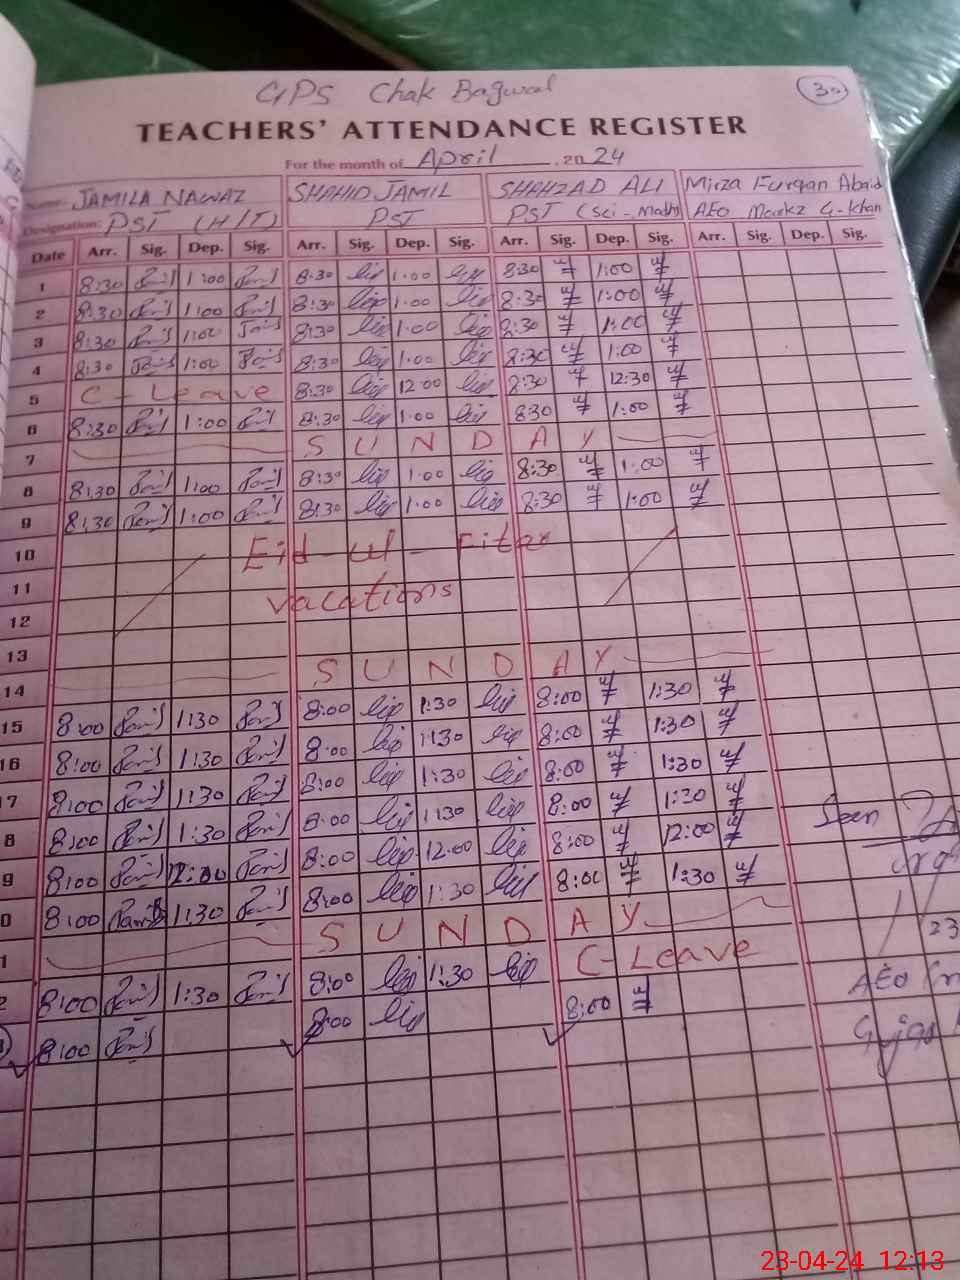 GPS Chak Bagwal 30
TEACHERS' ATTENDANCE REGISTER
For the month of April . 20 24
Name: JAMILA NAWAZ SHAHID JAMIL SHAHZAD ALI Mirza Furqan Abaid
Designation: PST (H/T) PST PST (Sci-Math) AEO Markz G-Khan
Date Arr. Sig. Dep. Sig. Arr. Sig. Dep. Sig. Arr. Sig. Dep. Sig. Arr. Sig. Dep. Sig.
1 8:30 1:00 8:30 1:00 8:30 1:00
2 8:30 1:00 8:30 1:00 8:30 1:00
3 8:30 1:00 8:30 1:00 8:30 1:00
4 8:30 1:00 8:30 1:00 8:30 1:00
5 C-Leave 8:30 12:00 8:30 12:30
6 8:30 1:00 8:30 1:00 8:30 1:00
7 SUNDAY
8 8:30 1:00 8:30 1:00 8:30 1:00
9 8:30 1:00 8:30 1:00 8:30 1:00
10 Eid-ul-Fiter
11 vacations
12
13
14 SUNDAY
15 8:00 1:30 8:00 1:30 8:00 1:30
16 8:00 1:30 8:00 1:30 8:00 1:30
7 8:00 1:30 8:00 1:30 8:00 1:30
8 8:00 1:30 8:00 1:30 8:00 1:30
9 8:00 12:00 8:00 12:00 8:00 12:00
0 8:00 1:30 8:00 1:30 8:00 1:30
1 SUNDAY
2 8:00 1:30 8:00 1:30 C-Leave
8:00 8:00 8:00
Seen
23
AEO
23-04-24 12:13